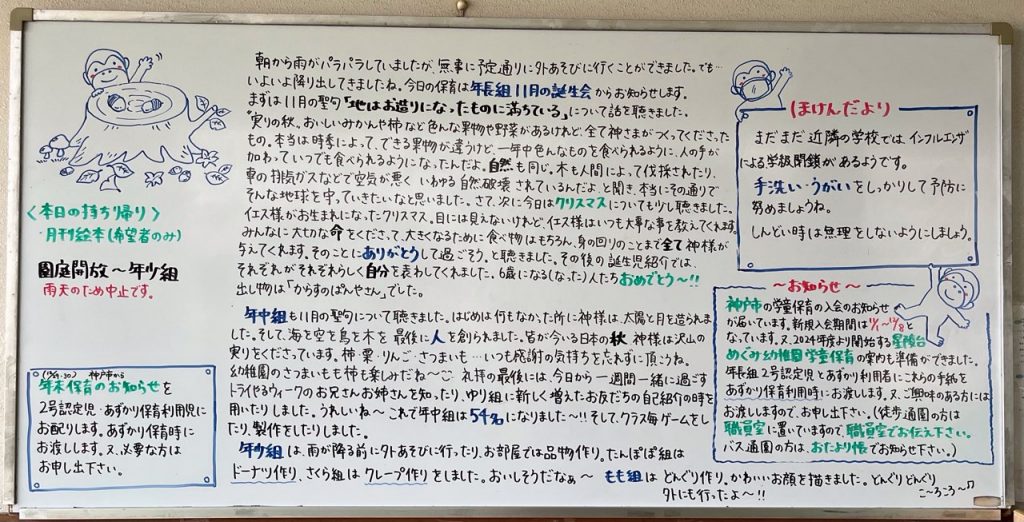 朝から雨がパラパラしていましたが、無事に予定通りに外あそびに行くことができました。でも…
いよいよ降り出してきましたね。今日の保育は年長組11月の誕生会からお知らせします。
まずは11月の聖句「地はお造りになったものに満ちている」について話を聴きました。
"実りの秋。おいしいみかんや柿など色んな果物や野菜があるけれど、全て神さまがつくってくださった
もの。本当は時季によって、できる果物が違うけど、一年中色んなものを食べられるように、人の手が
加わっていつでも食べられるようになったんだよ。自然も同じ。木も人間によって伐採されたり、
車の排気ガスなどで空気が悪く いわゆる自然破壊されているんだよ"と聞き、本当にその通りで
そんな地球を守っていきたいなと思いました。さて、次に今日はクリスマスについても少し聴きました。
イエス様がお生まれになったクリスマス。目には見えないけれど、イエス様はいつも大事な事を教えてくれます。
みんなに大切な命をくださって、大きくなるために食べ物はもちろん、身の回りのことまで全て神様が
与えてくれます。そのことにありがとうして過ごそう。と聴きました。その後の誕生児紹介では、
それぞれがそれぞれらしく自分を表わしてくれました。6歳になる(なった)人たちおめでとう〜!!
出し物は「からすのぱんやさん」でした。
年中組も11月の聖句について聴きました。はじめは何もなかった所に神様は、太陽と月を造られま
した。そして、海と空を鳥を木を最後に人を創られました。皆が今いる日本の秋 神様は沢山の
実りをくださっています。柿・栗・りんご・さつまいも…いつも感謝の気持ちを忘れずに頂こうね。
幼稚園のさつまいもも柿も楽しみだね〜 礼拝の最後には、今日から一週間一緒に過ごす
トライやるウィークのお兄さんお姉さんを知ったり、ゆり組に新しく増えたお友だちの自己紹介の時を
用いたりしました。うれしいね〜これで年中組は54名になりました〜!!そして、クラス毎ゲームをし
たり、製作をしたりしました。
年少組は、雨が降る前に外あそびに行ったり、お部屋では品物作り。たんぽぽ組は
ドーナツ作り、さくら組はクレープ作りをしました。おいしそうだなぁ〜 もも組は どんぐり作り。かわいいお顔を描きました。どんぐりどんぐり
こ〜ろころ〜♫
外にも行ったよ〜!!
〈本日の持ち帰り〉
・月刊絵本(希望者のみ)
園庭開放〜年少組
雨天のため中止です。
(12/29.30) 神戸市から
年末保育のお知らせを
2号認定児・あずかり保育利用児に
お配りします。あずかり保育時に
お渡します。又、必要な方は
お申し出下さい。
ほけんだより
まだまだ近隣の学校では、インフルエンザ
による学級閉鎖があるようです。
手洗い・うがいをしっかりして予防に
努めましょうね。
しんどい時は無理をしないようにしましょう。
〜お知らせ〜
神戸市の学童保育の入会のお知らせ
が届いています。新規入会期間は
なっています。又、2024年度より開始する星陵台
めぐみ幼稚園学童保育の案内も準備ができました。
年長組2号認定児とあずかり利用者にこれらの手紙を
あずかり保育利用時にお渡します。又、ご興味のある方には
お渡しますので、お申し出下さい。(徒歩通園の方は
職員室に置いていますので、職員室でお伝え下さい。
バス通園の方は、おたより帳でお知らせ下さい。)